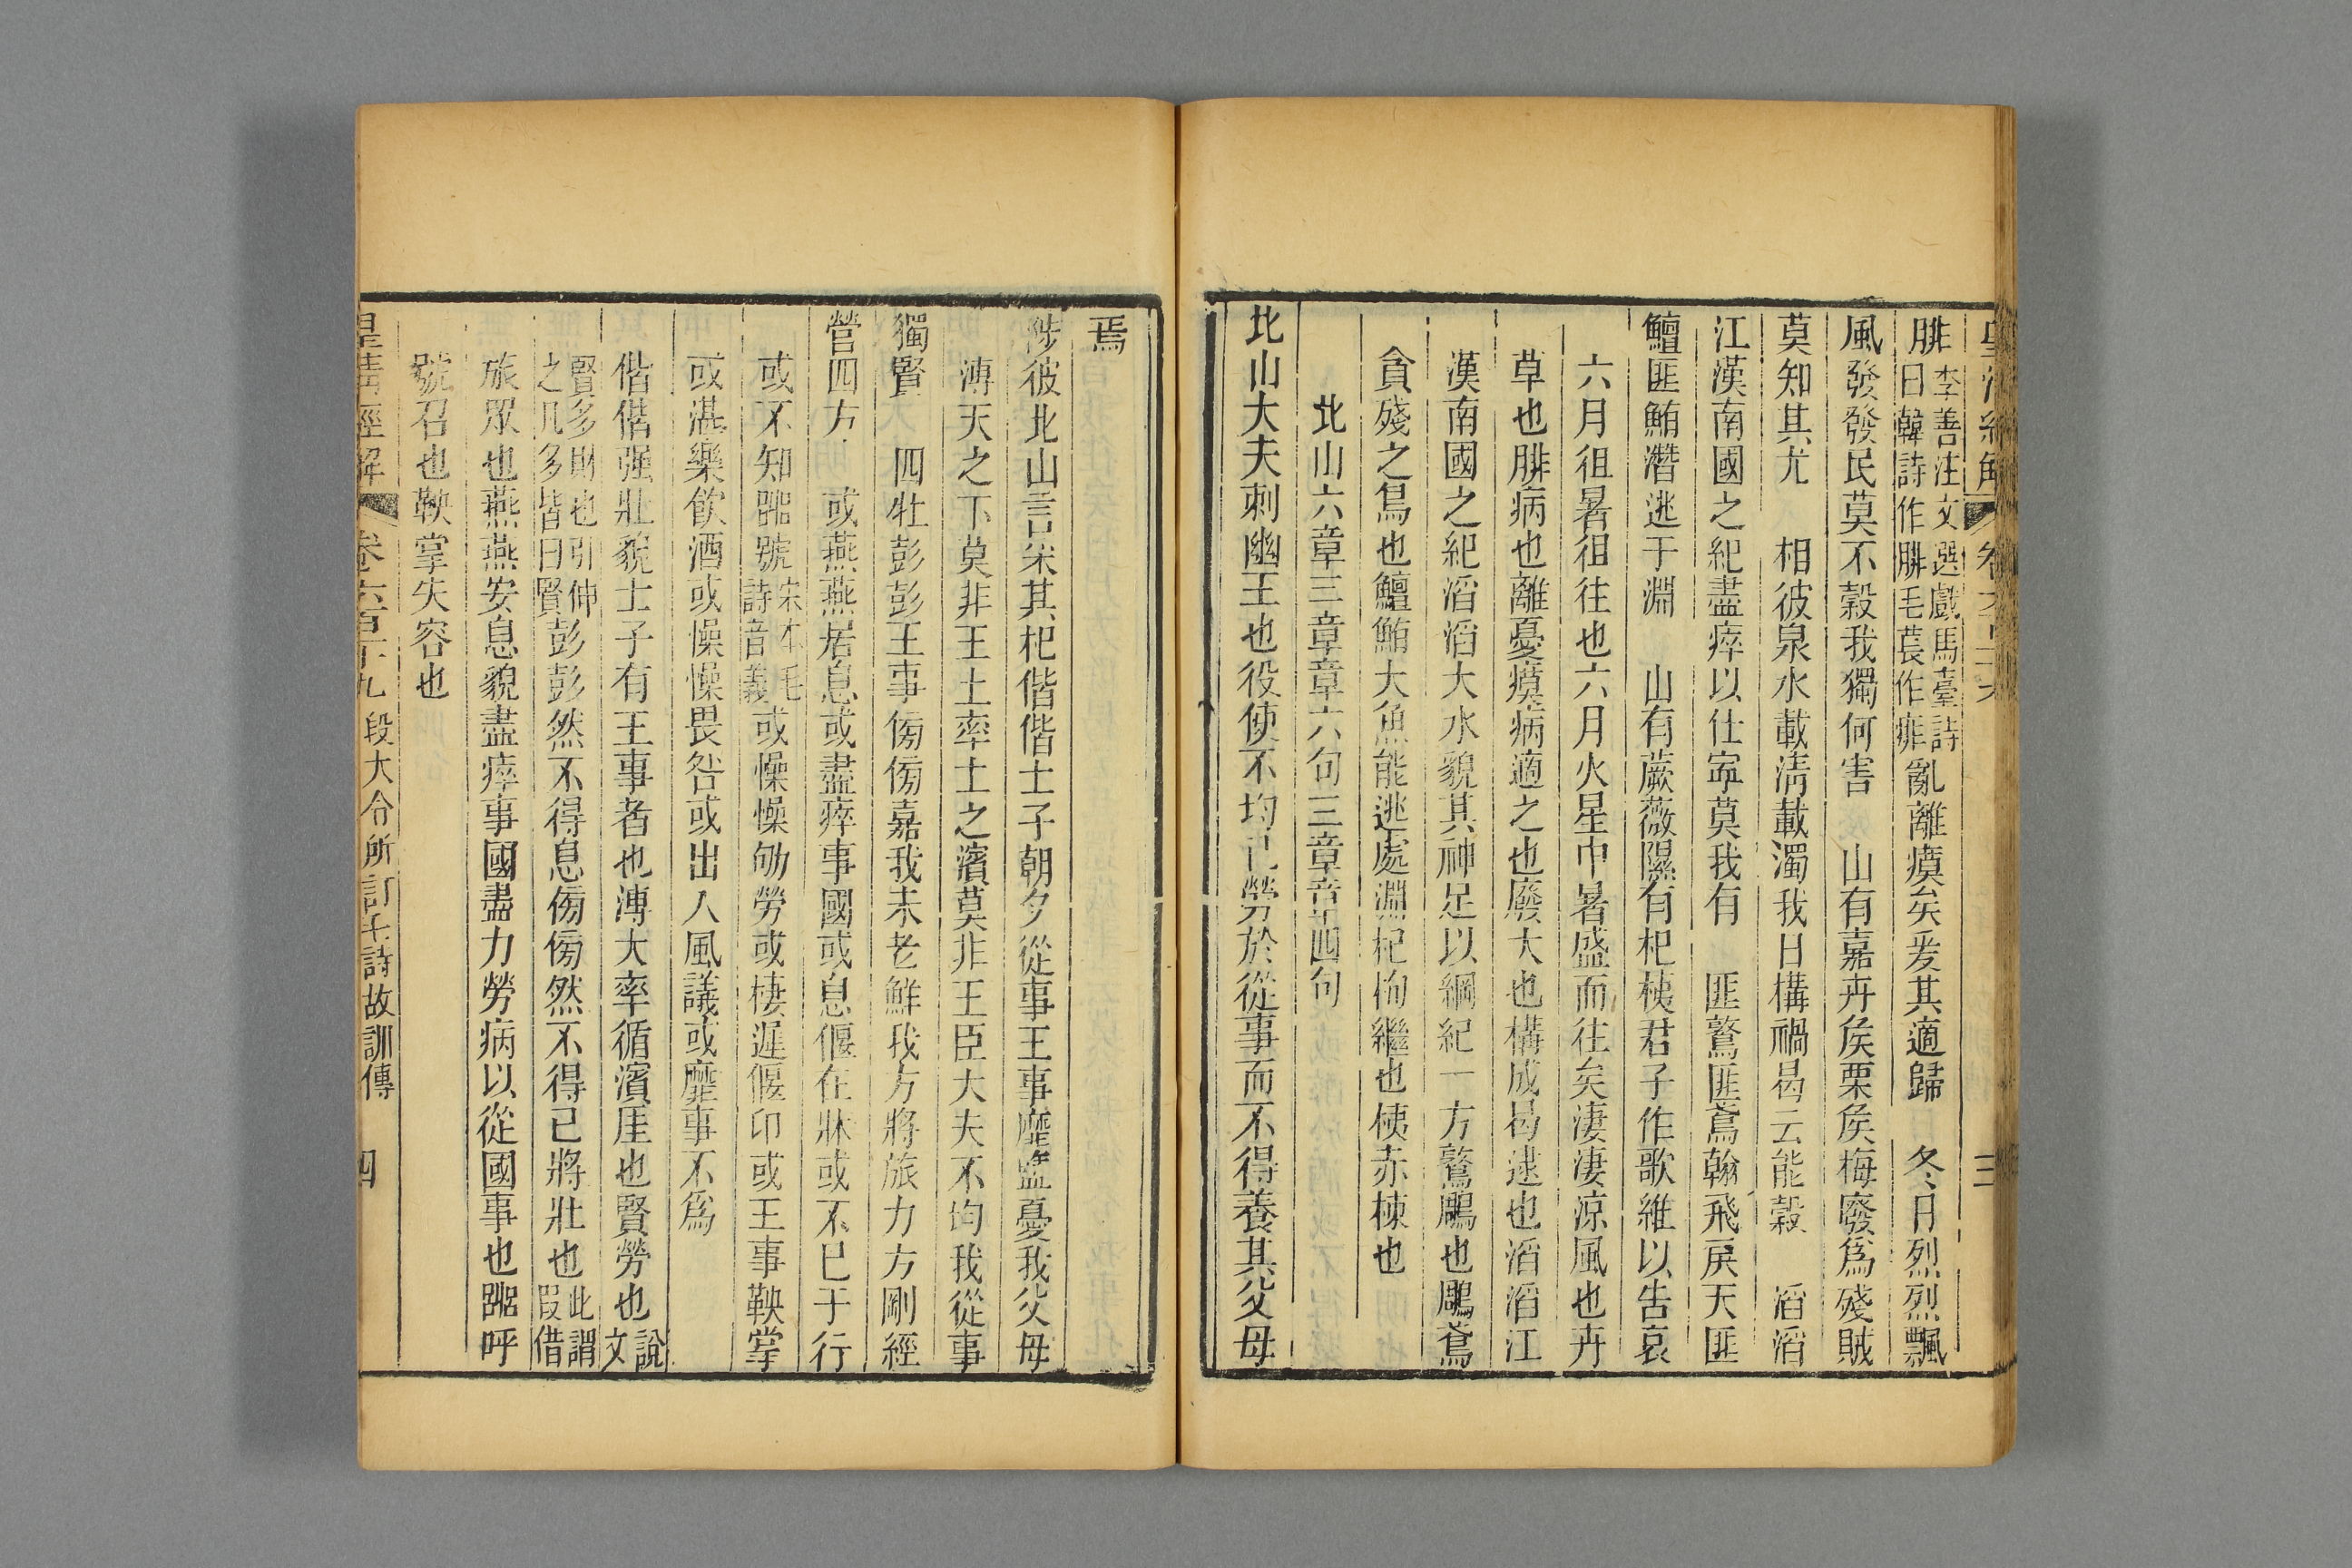 三
腓李善注文選戲馬臺詩曰韓詩作腓毛萇作痱亂離瘼矣爰其適歸　冬月烈烈飄
風發發民莫不穀我獨何害　山有嘉卉矦栗矦梅廢爲殘賊
莫知其尤　相彼泉水載淸載濁我日構禍曷云能穀　滔滔
江漢南國之紀盡瘁以仕寍莫我有　匪鷻匪鳶翰飛戾天匪
鱣匪鮪潛逃于淵　山有蕨薇隰有杞桋君子作歌維以吿哀
六月徂暑徂往也六月火星中暑盛而往矣淒淒涼風也卉
草也腓病也離憂瘼病適之也廢大也構成曷逮也滔滔江
漢南國之紀滔滔大水貌其神足以綱紀一方鷻鵰也鵰鳶
貪殘之鳥也鱣鮪大魚能逃處淵杞枸繼也桋赤楝也
北山六章三章章六句三章章四句
北山大夫刺幽王也役使不均己勞於從事而不得養其父母
焉
陟彼北山言采其杞偕偕士子朝夕從事王事靡盬憂我父母
溥天之下莫非王土率土之濱莫非王臣大夫不均我從事
獨賢　四牡彭彭王事傍傍嘉我未老鮮我方將旅力方剛經
營四方　或燕燕居息或盡瘁事國或息偃在牀或不已于行
或不知嘂號宋本毛詩音義或懆懆劬勞或棲遲偃卬或王事鞅掌
或湛樂飲酒或懆懆畏咎或出入風議或靡事不爲
偕偕强壯貌士子有王事者也溥大率循濱厓也賢勞也說文
賢多財也引伸之凡多皆曰賢彭彭然不得息傍傍然不得已將壯也此謂叚借
旅眾也燕燕安息貌盡瘁事國盡力勞病以從國事也嘂呼
號召也鞅掌失容也
皇淸經解　卷六百十九　段大令所訂毛詩故訓傳　四